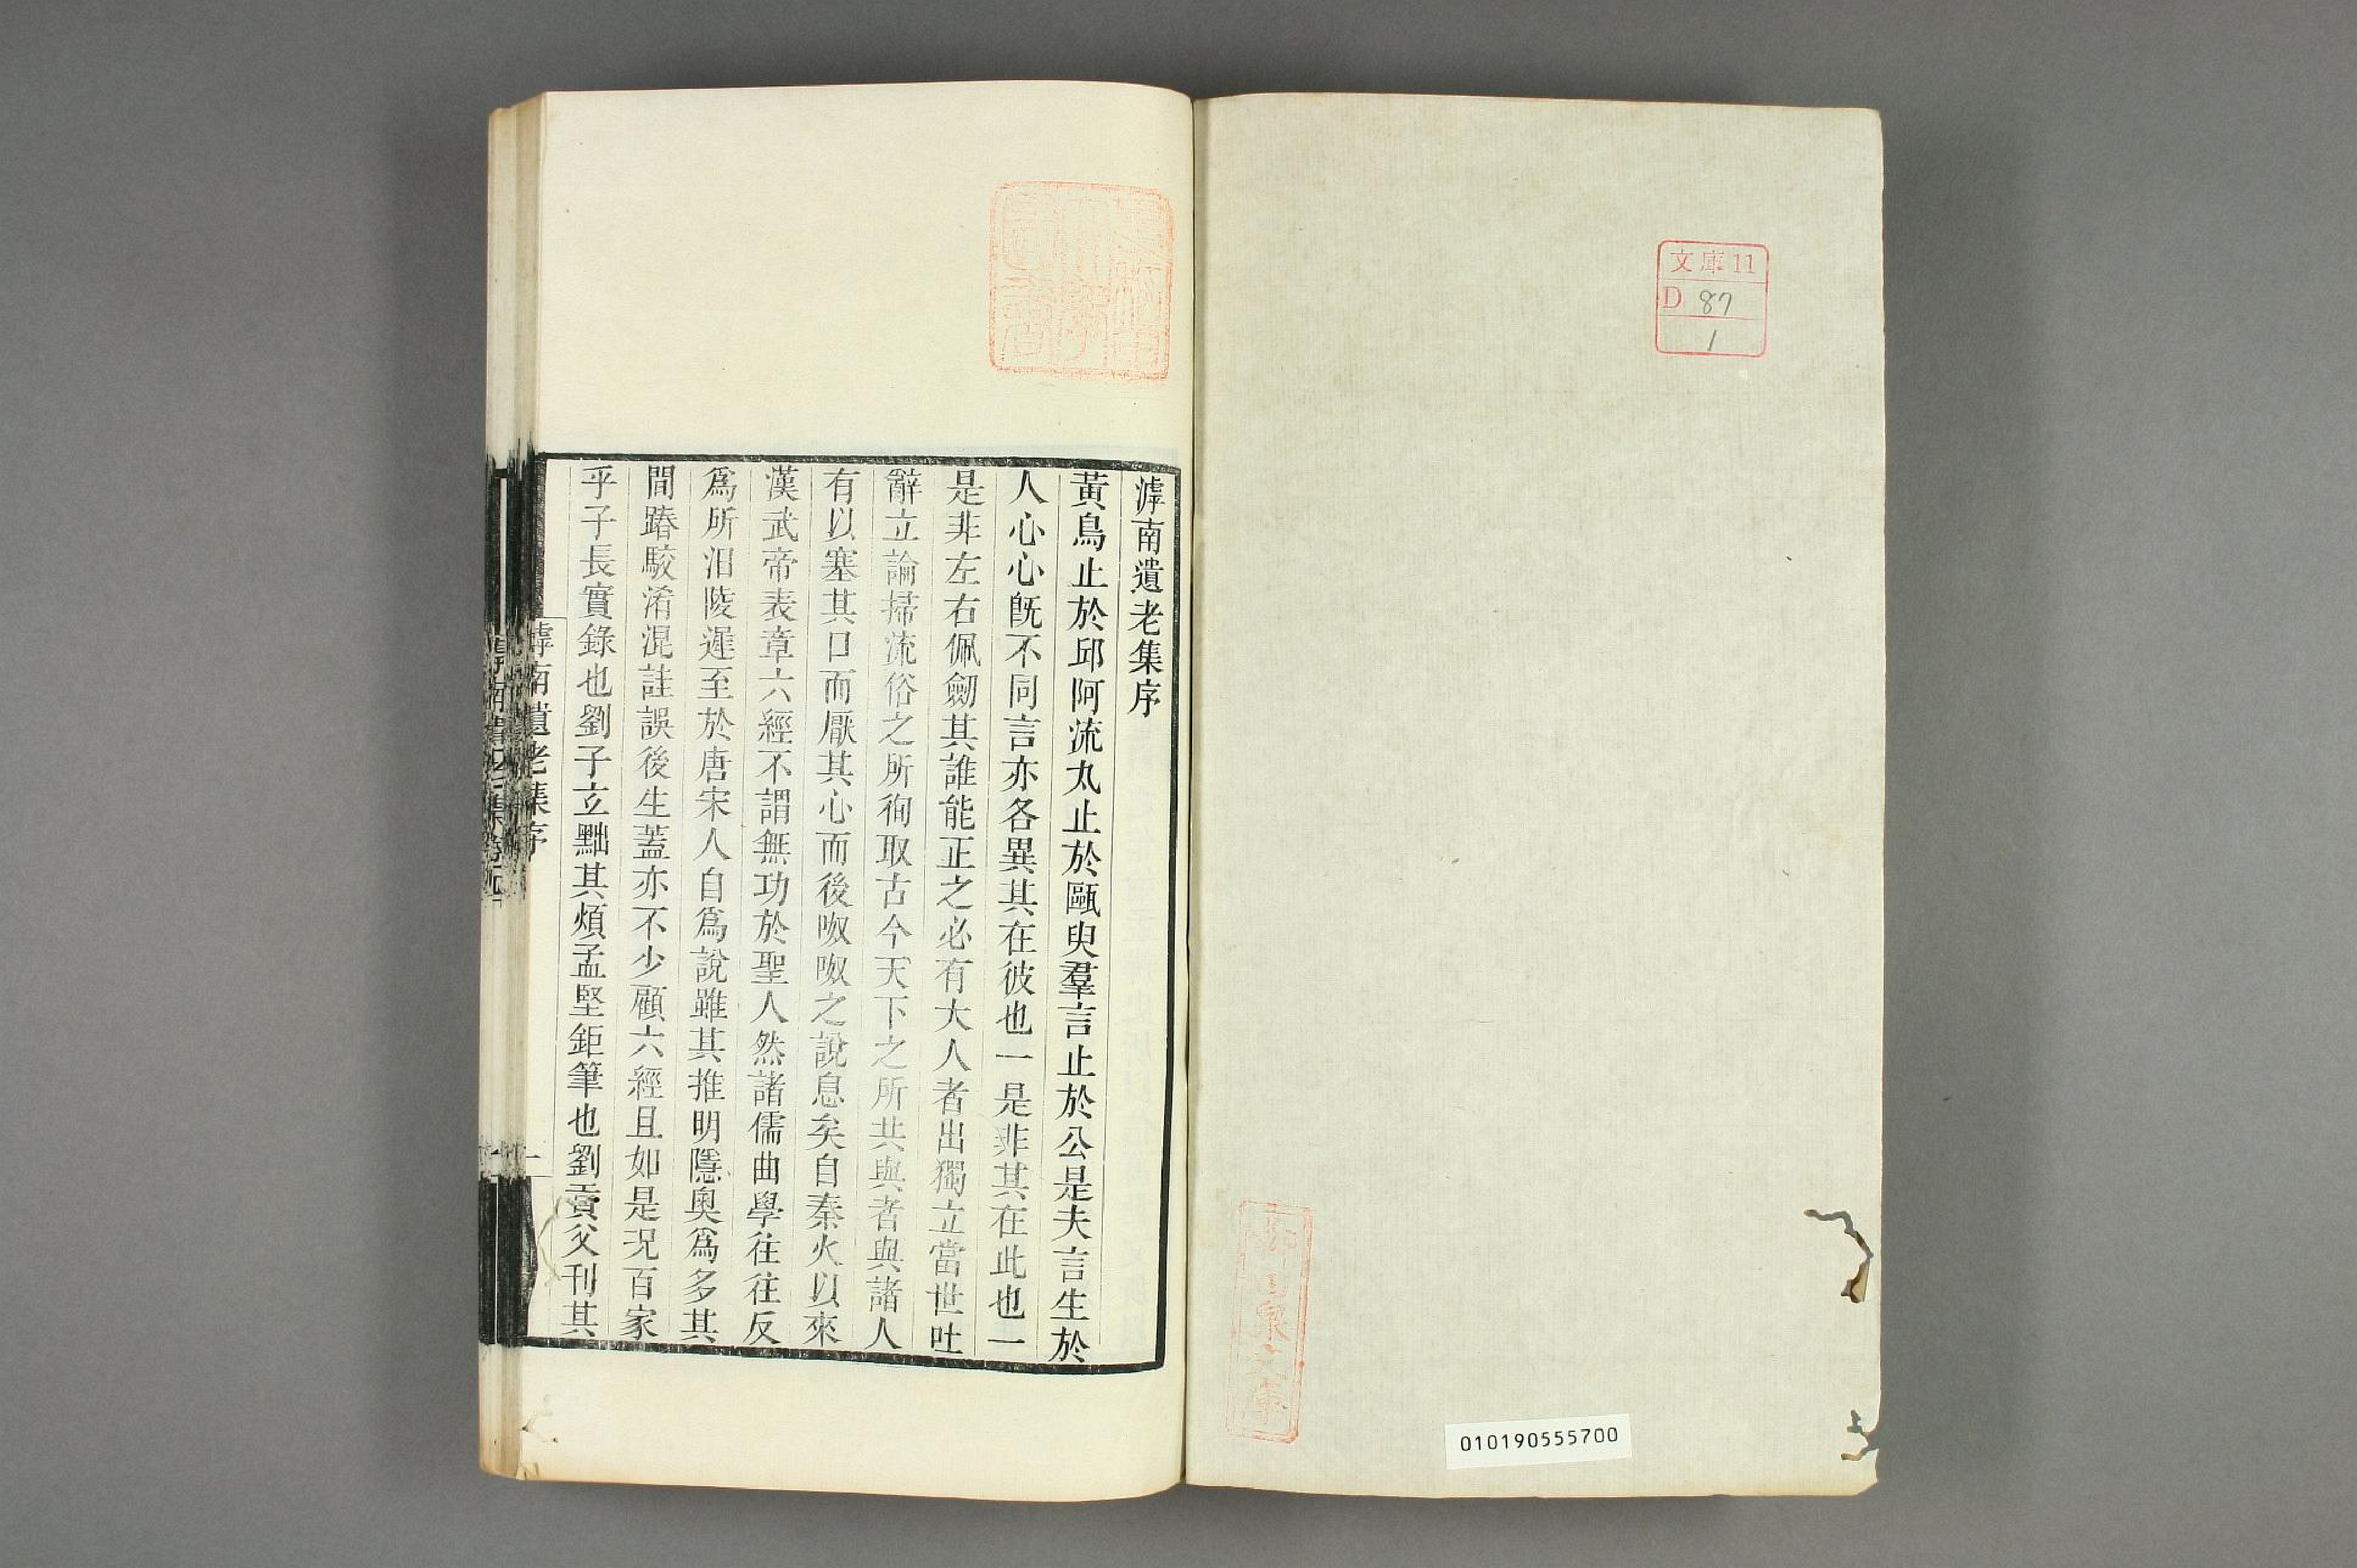 文庫11
D 87
1
010190555700
滹南遺老集序
黃鳥止於邱阿流丸止於甌臾羣言止於公是夫言生於
人心心旣不同言亦各異其在彼也一是非其在此也一
是非左右佩劒其誰能正之必有大人者出獨立當世吐
辭立論掃流俗之所徇取古今天下之所共與者與諸人
有以塞其口而厭其心而後呶呶之說息矣自秦火以來
漢武帝表章六經不謂無功於聖人然諸儒曲學往往反
爲所汨陵遲至於唐宋人自爲說雖其推明隱奧爲多其
間踳駮淆混詿誤後生蓋亦不少顧六經且如是況百家
乎子長實錄也劉子玄黜其煩孟堅鉅筆也劉貢父刊其
滹南遺老集序
一